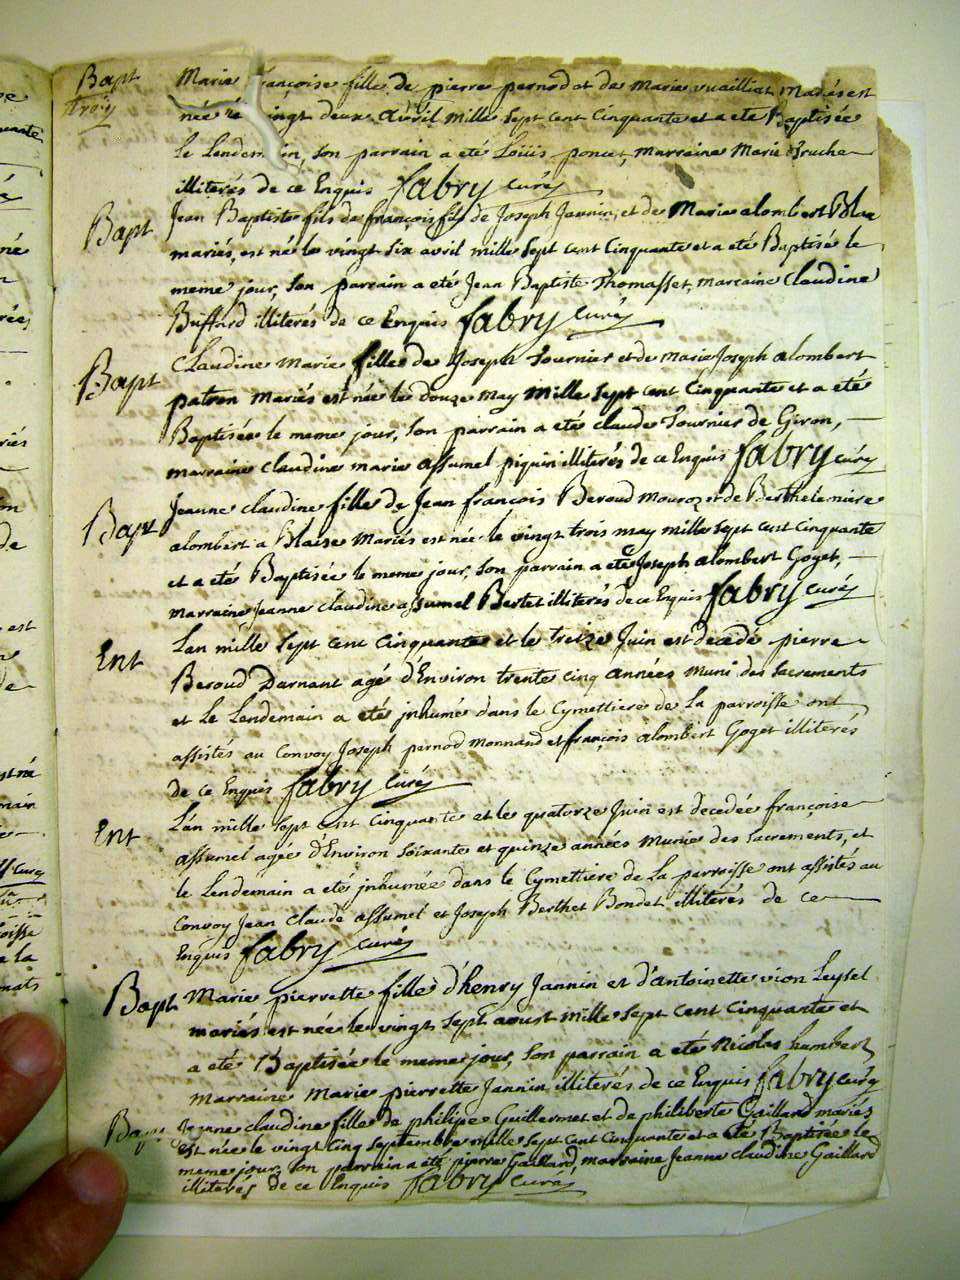 Bapt
troix
Marie françoise fille de pierre pernod et de Marie vuailliat Mariés est
née le vingt deux avril mille sept cent Cinquante et a eté Baptisée
le Lendemain, son parrain a eté Loüis poncet, marraine Marie
illiterés de ce Enquis fabry curé
Bapt
Jean Baptiste fils de françois fils de Joseph Jannin, et de Marie alombert Blaise
mariés, est né le vingt six avril mille sept cent Cinquante et a eté Baptisé le
meme jour, son parrain a eté Jean Baptiste Thomasset, marraine Claudine
Buffard illiterés de ce Enquis fabry Curé
Bapt
Claudine Marie fille de Joseph Tournier et de Marie Joseph alombert
patron Mariés est née le douze may Mille sept cent Cinquante et a eté
Baptisée le meme jour, son parrain a eté claude Tournier de Giron,
marraine Claudine marie assumel piquin illiterés de ce Enquis fabry curé
Bapt
Jeanne Claudine fille de Jean françois Beroud Mouroz et de Berthelemiere
alombert a Blaise Mariés est née le vingt trois may mille sept cent Cinquante
et a eté Baptisée le meme jour, son parrain a eté Joseph alombert Goget,
marraine Jeanne claudine assumel Bertet illiterés de ce Enquis fabry curé
Ent
Lan mille sept cent Cinquante et le treize Juin est decedé pierre
Beroud Darnant agé d'Environ trente cinq années muni des sacrements
et le Lendemain a eté jnhumé dans le Cymettiere de La parroisse ont
assistés au Convoy Joseph pernod Monnand et françois alombert Goget illiterés
de ce Enquis fabry Curé
Ent
L'an mille sept cent cinquante et le quatorze Juin est decedée françoise
assumel agée d'Environ soixante et quinze années Munie des sacrements, et
le Lendemain a eté jnhumée dans le Cymettiere de La parroisse ont assistés au
Convoy Jean Claude assumel et Joseph Berthet Bondet illiterés de ce
Enquis fabry curé
Bapt
Marie pierrette fille d'henry Jannin et d'antoinette vion Leysel
mariés est née le vingt sept aoust mille sept cent Cinquante et
a eté Baptisée le meme jour, son parrain a eté Nicolas humbert
marraine Marie pierrette Jannin illiterés de ce Enquis fabry curé
Bapt
Jeanne claudine fille de philipe Guillermet et de philiberte Gaillard mariés
est née le vingt cinq septembre mille sept cent Cinquante et a eté Baptisée le
meme jour, son parrain a eté pierre Gaillard, marraine Jeanne claudine Gaillard
illiterés de ce Enquis fabry curé